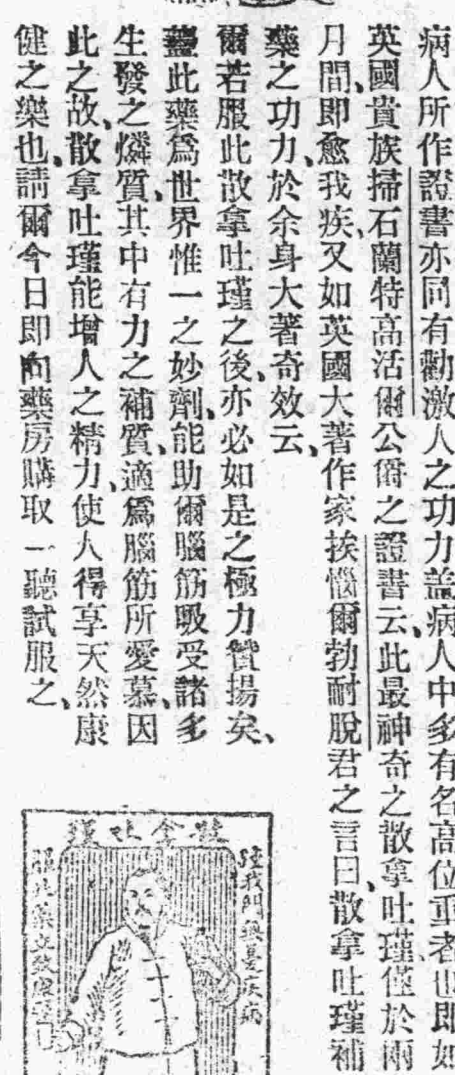 病人所作證書亦同有勸激人之功力蓋病人中多有名高位重者也即如
英國貴族掃石蘭特高活爾公爵之證書云、此最神奇之散拿吐瑾僅於兩
月間、即愈我疾、又如英國大著作家挨惱爾勃耐脫君之言曰、散拿吐瑾補
藥之功力、於余身大著奇效云、
爾若服此散拿吐瑾之後、亦必如是之極力贊揚矣、
蓋此藥爲世界惟一之妙劑、能助爾腦筋吸受諸多
生發之燐質、其中有力之補質、適爲腦筋所愛慕、因
此之故、散拿吐瑾能增人之精力、使人得享天然康
健之樂也、請爾今日即向藥房購取一聽試服之、
瑾吐拿散
我門
疾病
藥立致